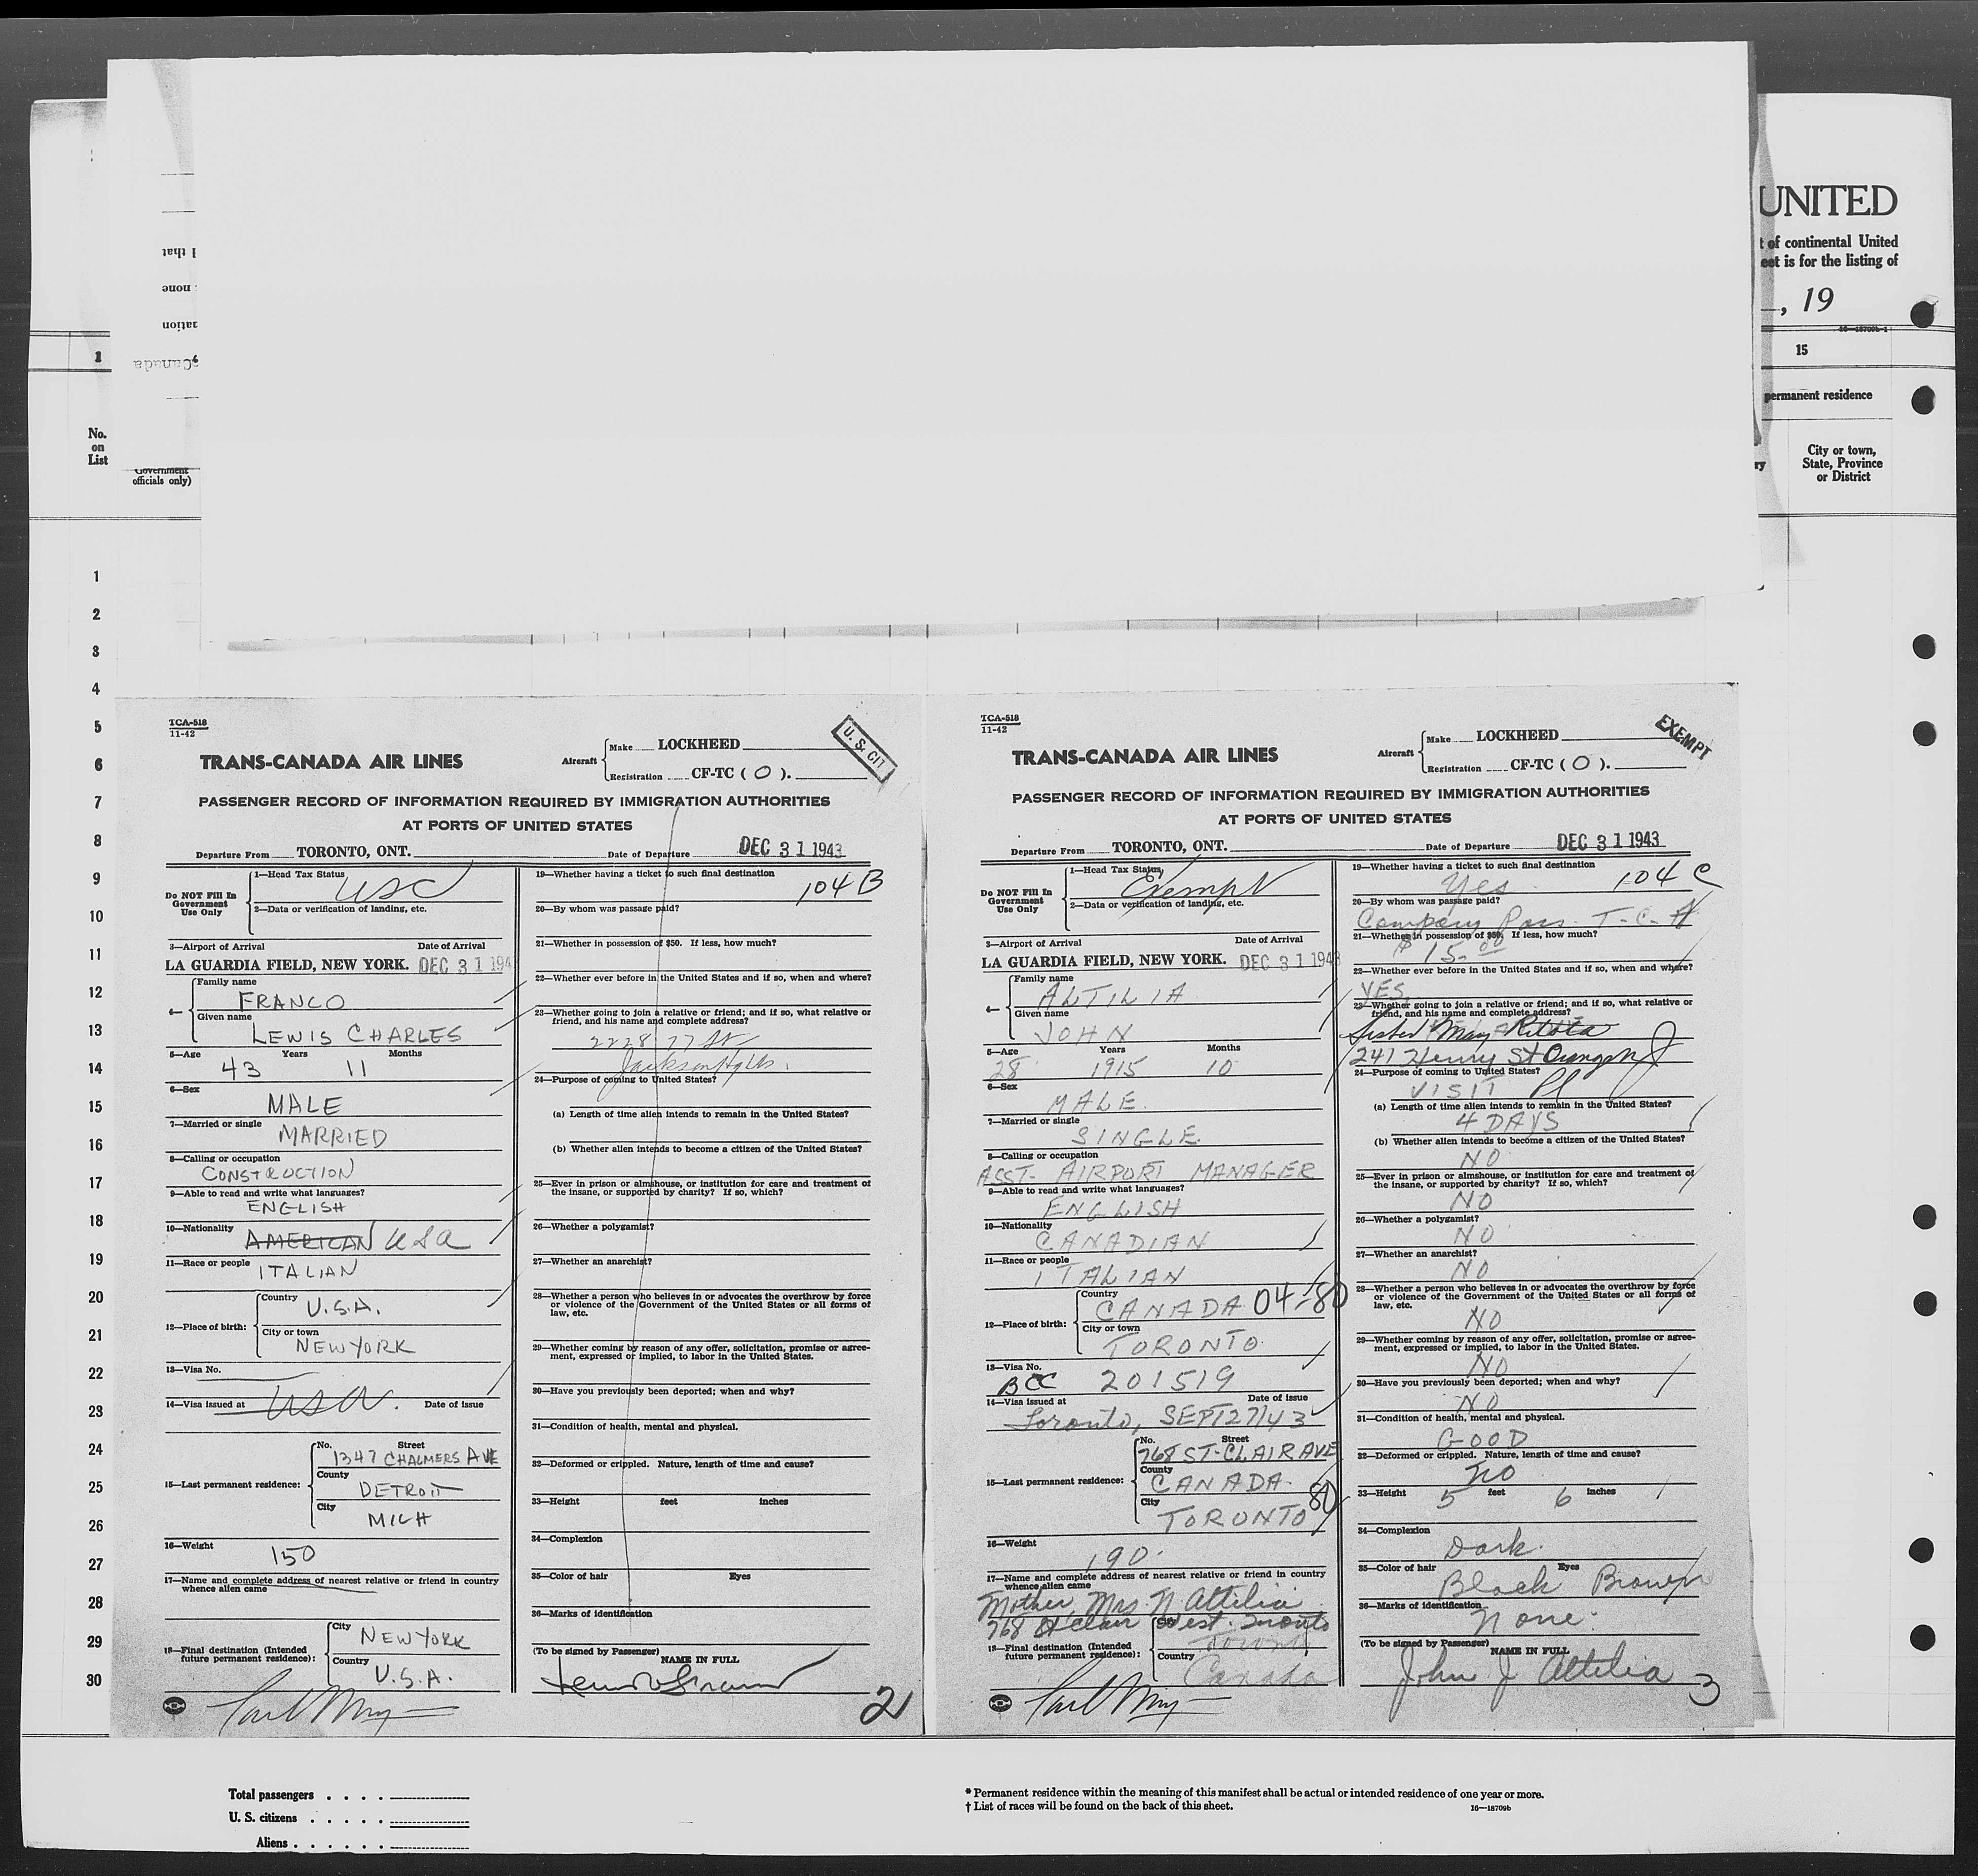 UNITED
t of continental United
eet is for the listing of
, 19
16—18709b-1
1
15
permanent residence
No.
on
List
City or town,
State, Province
or District
Government
officials only)
I that
none
Canada
1
2
3
4
5
6
7
8
9
10
11
12
13
14
15
16
17
18
19
20
21
22
23
24
25
26
27
28
29
30
TCA-518
11-42
U. S. CIT
TRANS-CANADA AIR LINES
Aircraft
Make LOCKHEED
Registration CF-TC ( O ).
PASSENGER RECORD OF INFORMATION REQUIRED BY IMMIGRATION AUTHORITIES
AT PORTS OF UNITED STATES
Departure From TORONTO, ONT. Date of Departure DEC 31 1943
Do NOT Fill In
Government
Use Only
1—Head Tax Status USC
2—Data or verification of landing, etc.
3—Airport of Arrival Date of Arrival
LA GUARDIA FIELD, NEW YORK. DEC 31 194
4—
Family name
FRANCO
Given name
LEWIS CHARLES
5—Age Years Months
43 11
6—Sex
MALE
7—Married or single
MARRIED
8—Calling or occupation
CONSTRUCTION
9—Able to read and write what languages?
ENGLISH
10—Nationality
AMERICAN USA
11—Race or people
ITALIAN
12—Place of birth:
Country
U.S.A.
City or town
NEW YORK
13—Visa No.
14—Visa issued at USA. Date of issue
15—Last permanent residence:
No. Street
1347 CHALMERS AVE
County
DETROIT
City
MICH
16—Weight
150
17—Name and complete address of nearest relative or friend in country
whence alien came
18—Final destination (Intended
future permanent residence):
City
NEW YORK
Country
U.S.A.
19—Whether having a ticket to such final destination
104 B
20—By whom was passage paid?
21—Whether in possession of $50. If less, how much?
22—Whether ever before in the United States and if so, when and where?
23—Whether going to join a relative or friend; and if so, what relative or
friend, and his name and complete address?
2228 77 St
Jackson Hghts.
24—Purpose of coming to United States?
(a) Length of time alien intends to remain in the United States?
(b) Whether alien intends to become a citizen of the United States?
25—Ever in prison or almshouse, or institution for care and treatment of
the insane, or supported by charity? If so, which?
26—Whether a polygamist?
27—Whether an anarchist?
28—Whether a person who believes in or advocates the overthrow by force
or violence of the Government of the United States or all forms of
law, etc.
29—Whether coming by reason of any offer, solicitation, promise or agree-
ment, expressed or implied, to labor in the United States.
30—Have you previously been deported; when and why?
31—Condition of health, mental and physical.
32—Deformed or crippled. Nature, length of time and cause?
33—Height feet inches
34—Complexion
35—Color of hair Eyes
36—Marks of identification
(To be signed by Passenger)
NAME IN FULL
2
TCA-518
11-42
EXEMPT
TRANS-CANADA AIR LINES
Aircraft
Make LOCKHEED
Registration CF-TC ( O ).
PASSENGER RECORD OF INFORMATION REQUIRED BY IMMIGRATION AUTHORITIES
AT PORTS OF UNITED STATES
Departure From TORONTO, ONT. Date of Departure DEC 31 1943
Do NOT Fill In
Government
Use Only
1—Head Tax Status Exempt
2—Data or verification of landing, etc.
3—Airport of Arrival Date of Arrival
LA GUARDIA FIELD, NEW YORK. DEC 31 1943
4—
Family name
ALTILIA
Given name
JOHN
5—Age Years Months
28 1915 10
6—Sex
MALE.
7—Married or single
SINGLE
8—Calling or occupation
ASST- AIRPORT MANAGER
9—Able to read and write what languages?
ENGLISH
10—Nationality
CANADIAN
11—Race or people
ITALIAN
12—Place of birth:
Country
CANADA 04-80
City or town
TORONTO
13—Visa No.
BCC 201519
14—Visa issued at Date of issue
Toronto, SEPT 27/43
15—Last permanent residence:
No. Street
768 ST-CLAIR AVE
County
CANADA
City
TORONTO 80
16—Weight
190.
17—Name and complete address of nearest relative or friend in country
whence alien came
Mother Mrs. N Altilia
768 St Clair West. Toronto
18—Final destination (Intended
future permanent residence):
City
Toronto
Country
Canada
19—Whether having a ticket to such final destination
Yes 104 C
20—By whom was passage paid?
Company Pass. T-C-A
21—Whether in possession of $50. If less, how much?
$15.00
22—Whether ever before in the United States and if so, when and where?
YES
23—Whether going to join a relative or friend; and if so, what relative or
friend, and his name and complete address?
Sister May
241 Henry St
24—Purpose of coming to United States?
VISIT Pl
(a) Length of time alien intends to remain in the United States?
4 DAYS
(b) Whether alien intends to become a citizen of the United States?
NO
25—Ever in prison or almshouse, or institution for care and treatment of
the insane, or supported by charity? If so, which?
NO
26—Whether a polygamist?
NO
27—Whether an anarchist?
NO
28—Whether a person who believes in or advocates the overthrow by force
or violence of the Government of the United States or all forms of
law, etc.
NO
29—Whether coming by reason of any offer, solicitation, promise or agree-
ment, expressed or implied, to labor in the United States.
NO
30—Have you previously been deported; when and why?
NO
31—Condition of health, mental and physical.
GOOD
32—Deformed or crippled. Nature, length of time and cause?
NO
33—Height 5 feet 6 inches
34—Complexion
Dark.
35—Color of hair Eyes
Black Brown
36—Marks of identification
None.
(To be signed by Passenger)
NAME IN FULL
John J Altilia
3
Total passengers
U. S. citizens
Aliens
* Permanent residence within the meaning of this manifest shall be actual or intended residence of one year or more.
† List of races will be found on the back of this sheet.
16—18709b